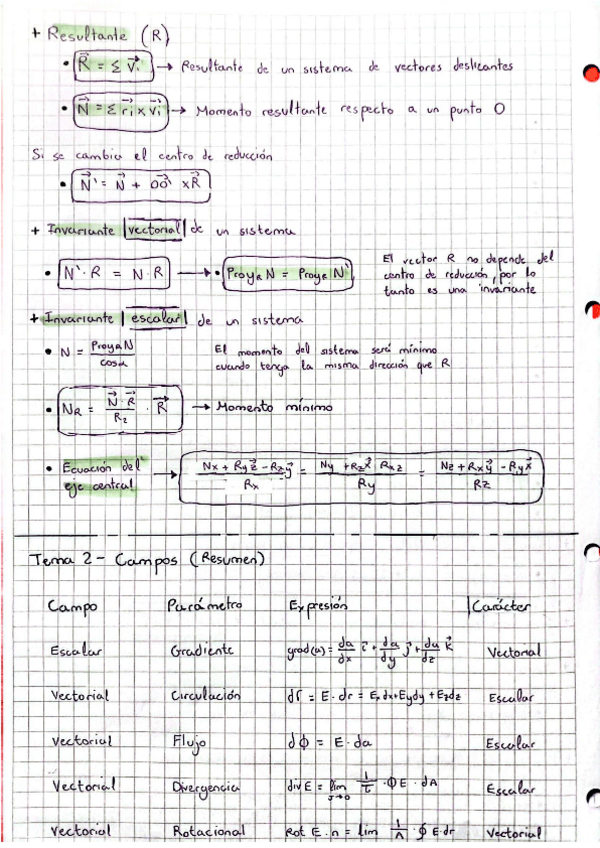 + Resultante (R)
• R⃗ = Σ v⃗i → Resultante de un sistema de vectores deslizantes
• N⃗ = Σ r⃗i x v⃗i → Momento resultante respecto a un punto O
Si se cambia el centro de reducción
• N⃗' = N⃗ + OO⃗' x R⃗
+ Invariante |vectorial| de un sistema
• N'· R = N · R → • ProyR N = ProyR N'
El vector R no depende del
centro de reducción, por lo
tanto es una invariante
+ Invariante | escalar | de un sistema
• N = ProyR N / cosα
El momento del sistema será mínimo
cuando tenga la misma dirección que R
• NR = N⃗ · R⃗ / R2 · R⃗ → Momento mínimo
• Ecuación del
eje central → Nx + Ryz⃗ - Rzy⃗ / Rx = Ny + Rzx⃗ Rxz / Ry = Nz + Rxy⃗ - Ryx⃗ / Rz
Tema 2 - Campos (Resumen)
Campo Parámetro Expresión |Carácter
Escalar Gradiente grad(a) = da/dx i⃗ + da/dy j⃗ + da/dz k⃗ Vectorial
Vectorial Circulación dΓ = E · dr = Exdx+Eydy+Ezdz Escalar
Vectorial Flujo dϕ = E · da Escalar
Vectorial Divergencia div E = lim 1/τ · ΦE · dA Escalar
Vectorial Rotacional Rot E · n = lim 1/A · ∮ E·dr Vectorial